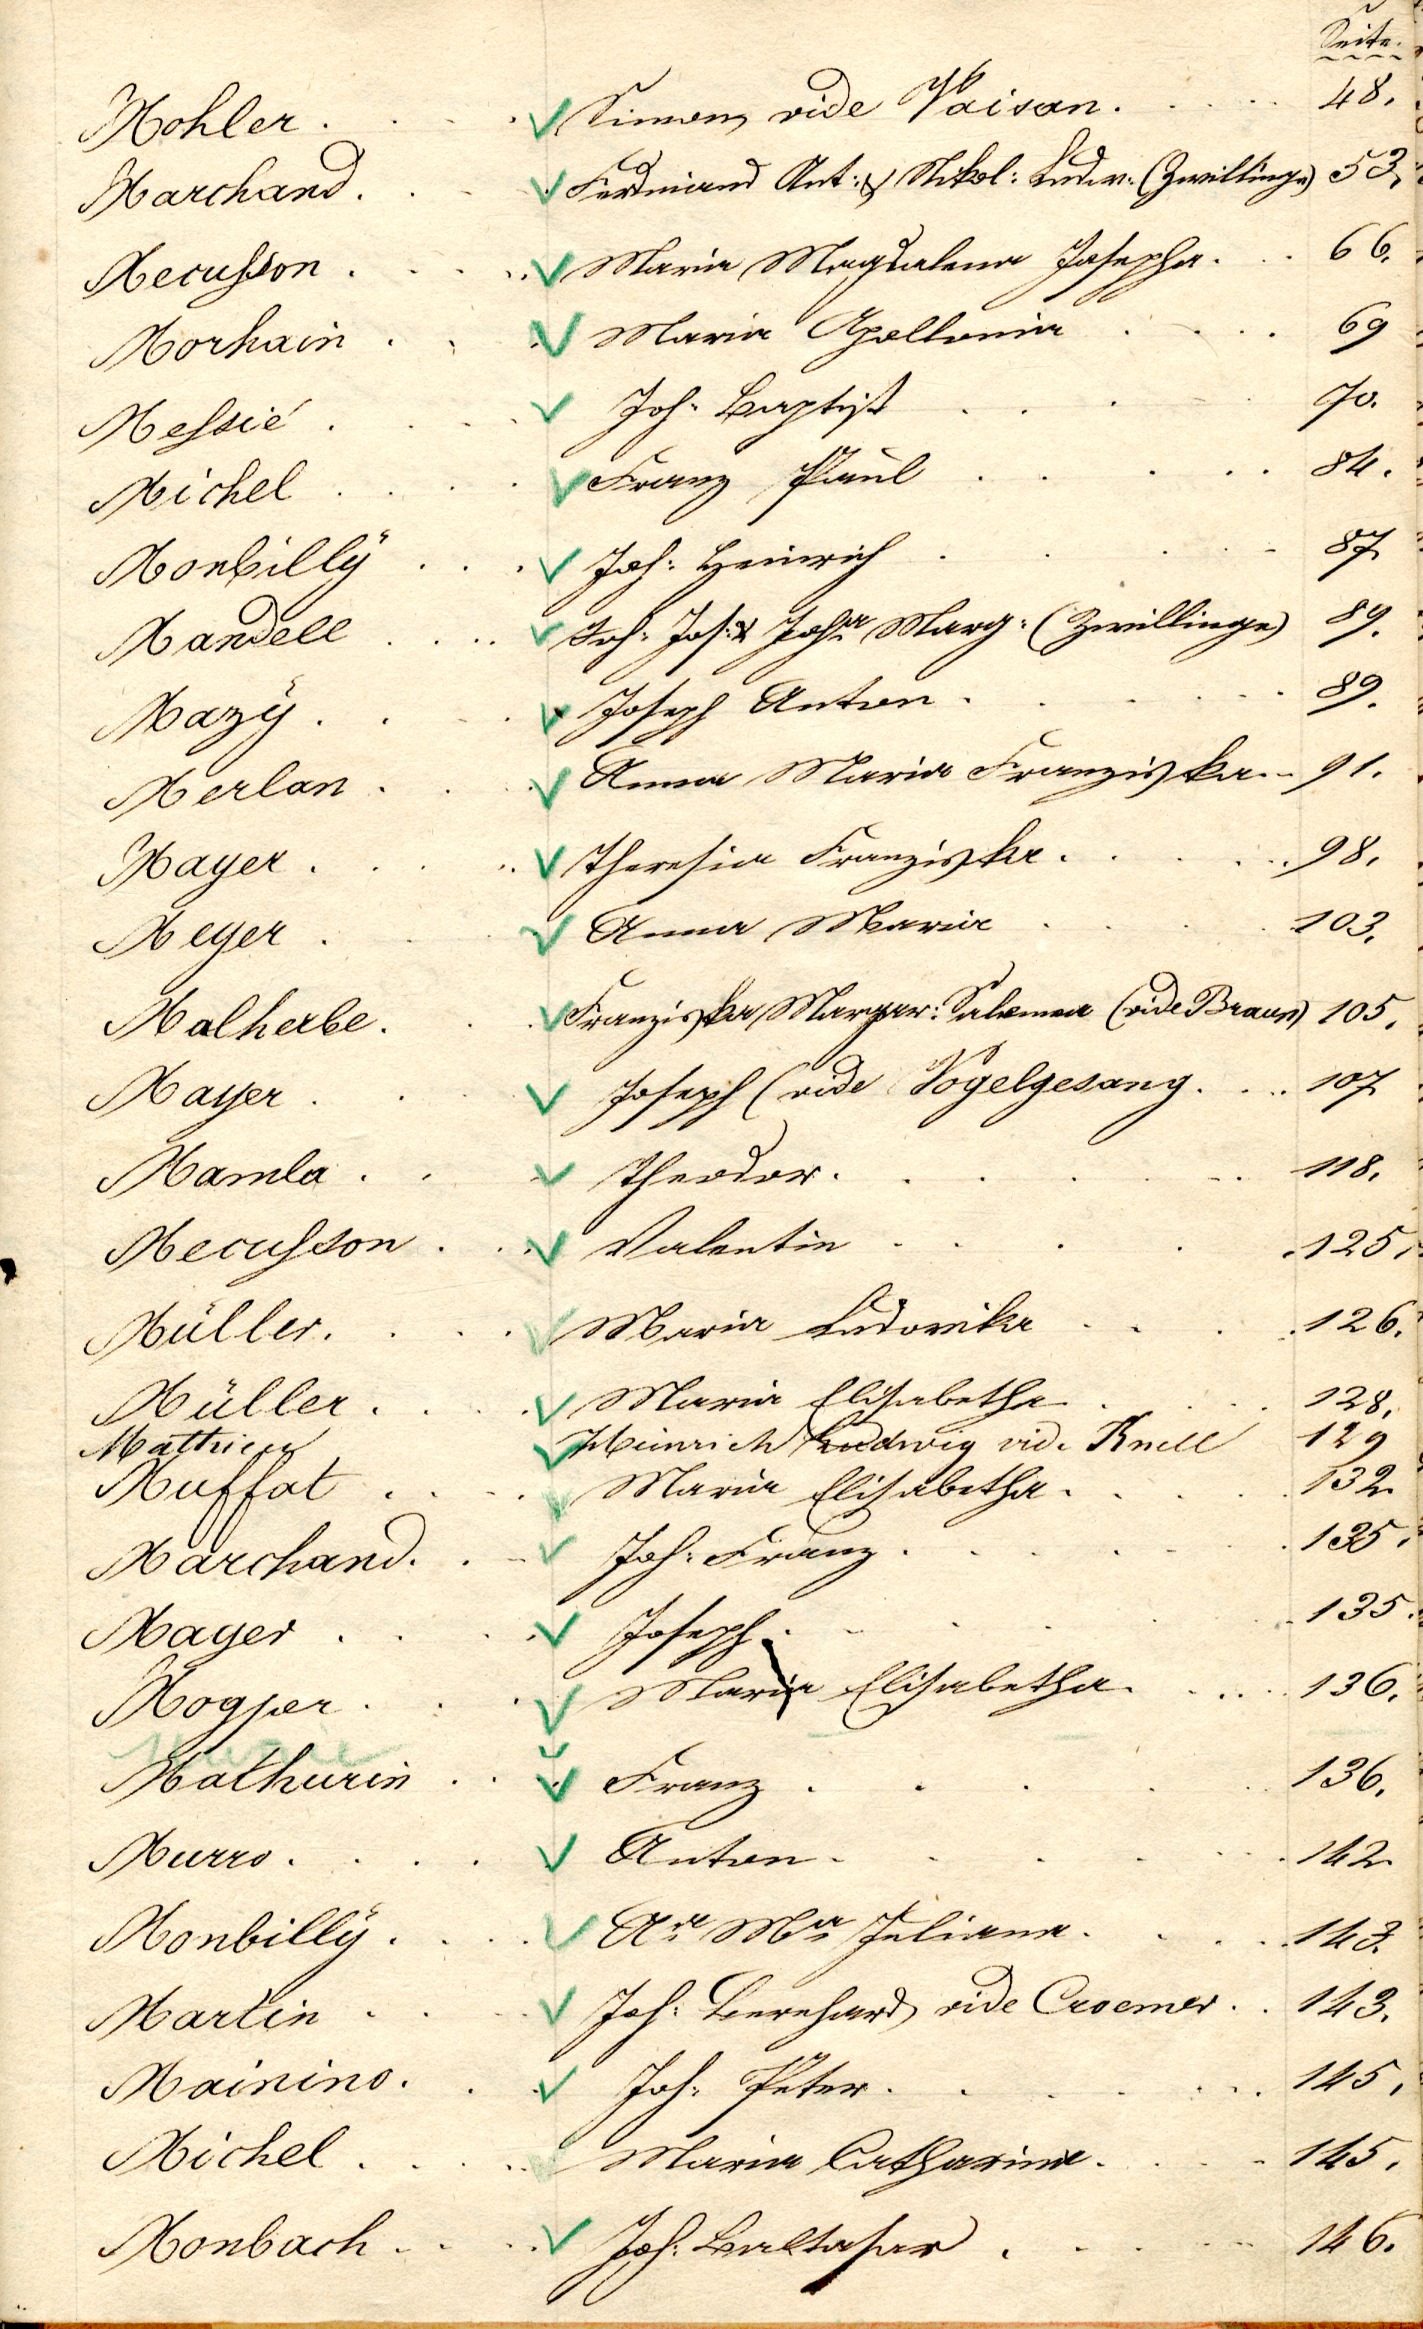 Seite.
Mohler . . . . Simon, vide Vaisan. . . . . 48.
Marchand. . . . Ferdinand Ant: & Nikol: Ludw: (Zwillinge) 53.
Mecusson . . . . Maria Magdalena Josepha. . . 66.
Morhain . . . Maria Apollonia . . . . 69
Messié . . . . Joh: Baptist . . . . 70.
Michel . . . . Franz Paul . . . . 84.
Monbillÿ . . . Joh: Heinrich . . . . 87
Mandell . . . . Joh: Jos: & Joh:a Marg: (Zwillinge) 89.
Mazÿ . . . . Joseph Anton . . . . . 89.
Merlan . . . Anna Maria Franziska. . 91.
Mayer . . . . Theresia Franziska . . . . . 98.
Meyer . . . . Anna Maria . . . . 103.
Malherbe. . . Franziska Margar: Salomea (vide Braun) 105.
Mayer . . . Joseph (vide Vogelgesang. . . 107
Mamla . . . Theodor. . . . . . . 118.
Mecusson . . . Valentin . . . . . 125.
Müller. . . . Maria Ludovika . . . . 126.
Müller . . . . Maria Elisabetha . . . 128.
Mathieu Heinrich Ludwig vid. Knell 129
Muffat . . . . Maria Elisabetha . . . . 132.
Marchand. . . Joh: Franz . . . . . . 135.
Mayer . . . . Joseph . . . . . 135.
Mogper . . . Maria Elisabetha. . . . 136.
Mathurin . . . Franz . . . . . 136.
Murro . . . . Anton . . . . . 142.
Monbillÿ . . . . A:a M:a Juliana. . . . . 143.
Martin . . . Joh: Bernhard, vide Croemer . . 143.
Mainino . . . Joh: Peter . . . . . . 145.
Michel . . . . Maria Catharina . . . . 145.
Monbach . . . . Joh: Baltasar . . . . 146.